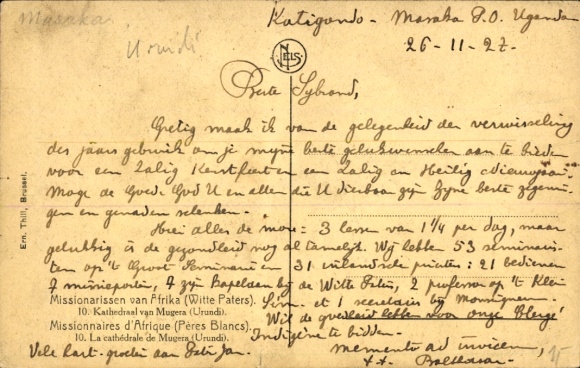 Masaka
Urundi
Katigondo - Masaka P.O. Uganda
26-11-27.
NELS
Beste Sybrand,
Gretig maak ik van de gelegenheid der verwisseling
des jaars gebruik om je mijne beste gelukwenschen aan te bieden
voor een Zalig Kerstfeest en een Zalig en Heilig Nieuwjaar.
Moge de Goede God U en allen die U dierbaar zijn Zijne beste zegenin-
gen en genaden schenken.
Hier alles de mou: 3 lessen van 1 1/4 per dag, maar
gelukkig is de gezondheid nog al tamelijk. Wij hebben 53 seminaris-
ten op 't Groot Seminarie en 31 inlandsche priesters: 21 bedienen
7 missieposten, 7 zijn Kapelaan bij de Witte Paters, 2 professor op 't Klein
Sem. et 1 secretaris bij Monseigneur.
Wil de goedheid hebben voor onze Clergé
Indigène te bidden.
Memento ad invicem,
Balthasar
Vele hart. groeten aan Pater Jan.
Ern. Thill, Brussel.
Missionarissen van Afrika (Witte Paters).
10. Kathedraal van Mugera (Urundi).
Missionnaires d'Afrique (Pères Blancs).
10. La cathédrale de Mugera (Urundi).